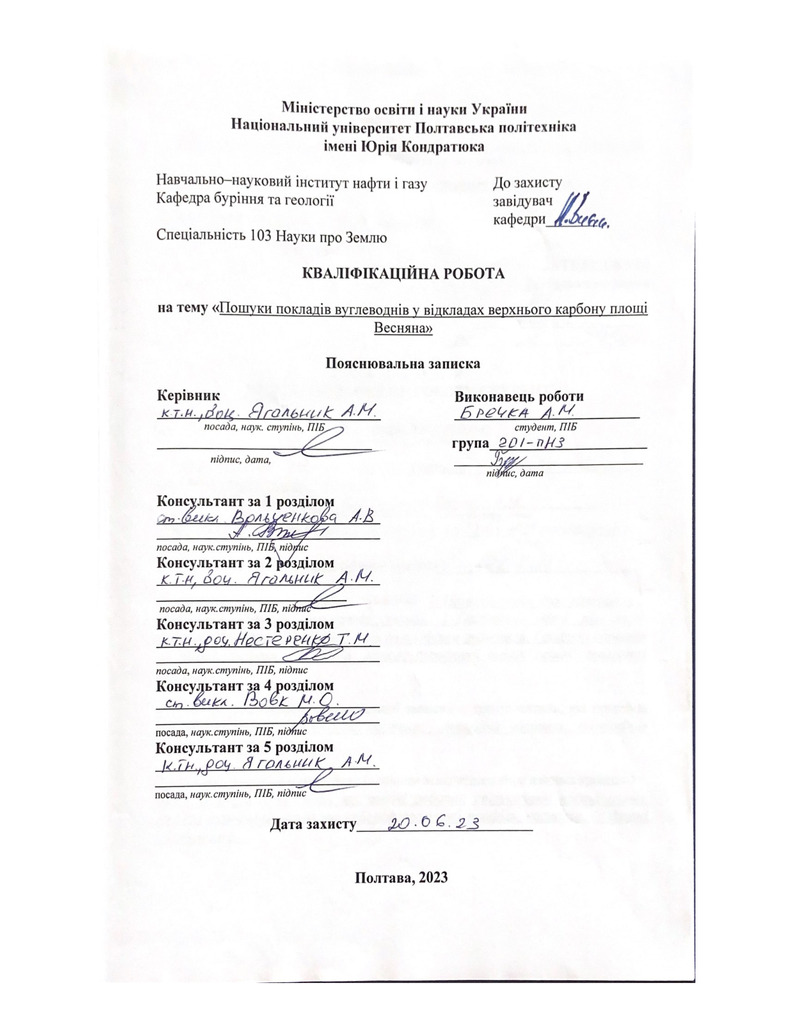 Міністерство освіти і науки України
Національний університет Полтавська політехніка
імені Юрія Кондратюка
Навчально–науковий інститут нафти і газу
Кафедра буріння та геології
Спеціальність 103 Науки про Землю
До захисту
завідувач
кафедри
КВАЛІФІКАЦІЙНА РОБОТА
на тему «Пошуки покладів вуглеводнів у відкладах верхнього карбону площі
Весняна»
Пояснювальна записка
Керівник
к.т.н., доц. Ягольник А.М.
посада, наук. ступінь, ПІБ
підпис, дата,
Виконавець роботи
Бречка А.М.
студент, ПІБ
група 201-пНЗ
підпис, дата
Консультант за 1 розділом
ст. викл. Вольченкова А.В
посада, наук.ступінь, ПІБ, підпис
Консультант за 2 розділом
к.т.н, доц. Ягольник А.М.
посада, наук.ступінь, ПІБ, підпис
Консультант за 3 розділом
к.т.н., доц. Нестеренко Т.М
посада, наук.ступінь, ПІБ, підпис
Консультант за 4 розділом
ст. викл. Вовк М.О.
посада, наук.ступінь, ПІБ, підпис
Консультант за 5 розділом
к.т.н., доц Ягольник А.М.
посада, наук.ступінь, ПІБ, підпис
Дата захисту 20.06.23
Полтава, 2023